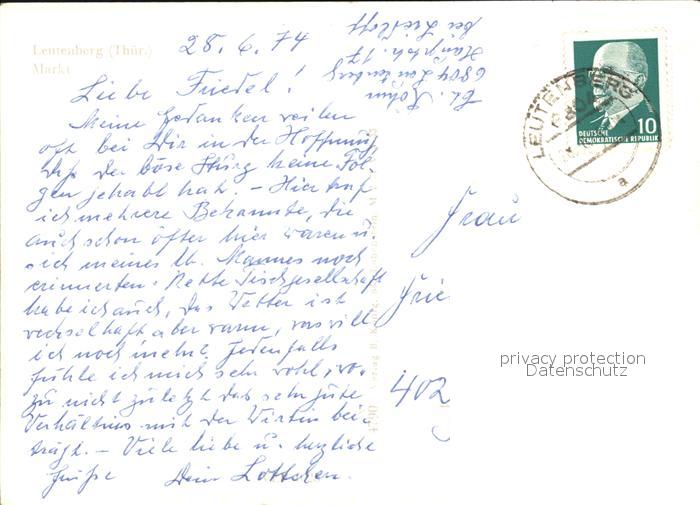 Leutenberg (Thür.)
Markt
28.6.74
Liebe Friedel!
Meine Gedanken weilen
oft bei Dir in der Hoffnung
daß der böse Sturz keine Fol-
gen gehabt hat. – Hier traf
ich mehrere Bekannte, die
auch schon öfter hier waren u.
sich meines lb. Mannes noch
erinnerten. Nette Tischgesellschaft
habe ich auch, das Wetter ist
wechselhaft aber warm, was will
ich noch mehr? Jedenfalls
fühle ich mich sehr wohl, wo-
zu nicht zuletzt das sehr gute
Verhältnis mit der Wirtin bei-
trägt. – Viele liebe u. herzliche
Grüße Dein Lottchen.
Röhn
6804 Leutenberg
Hauptstr. 17
bei
LEUTENBERG
a
DEUTSCHE
DEMOKRATISCHE REPUBLIK
10
Frau
Frie
402
privacy protection
Datenschutz